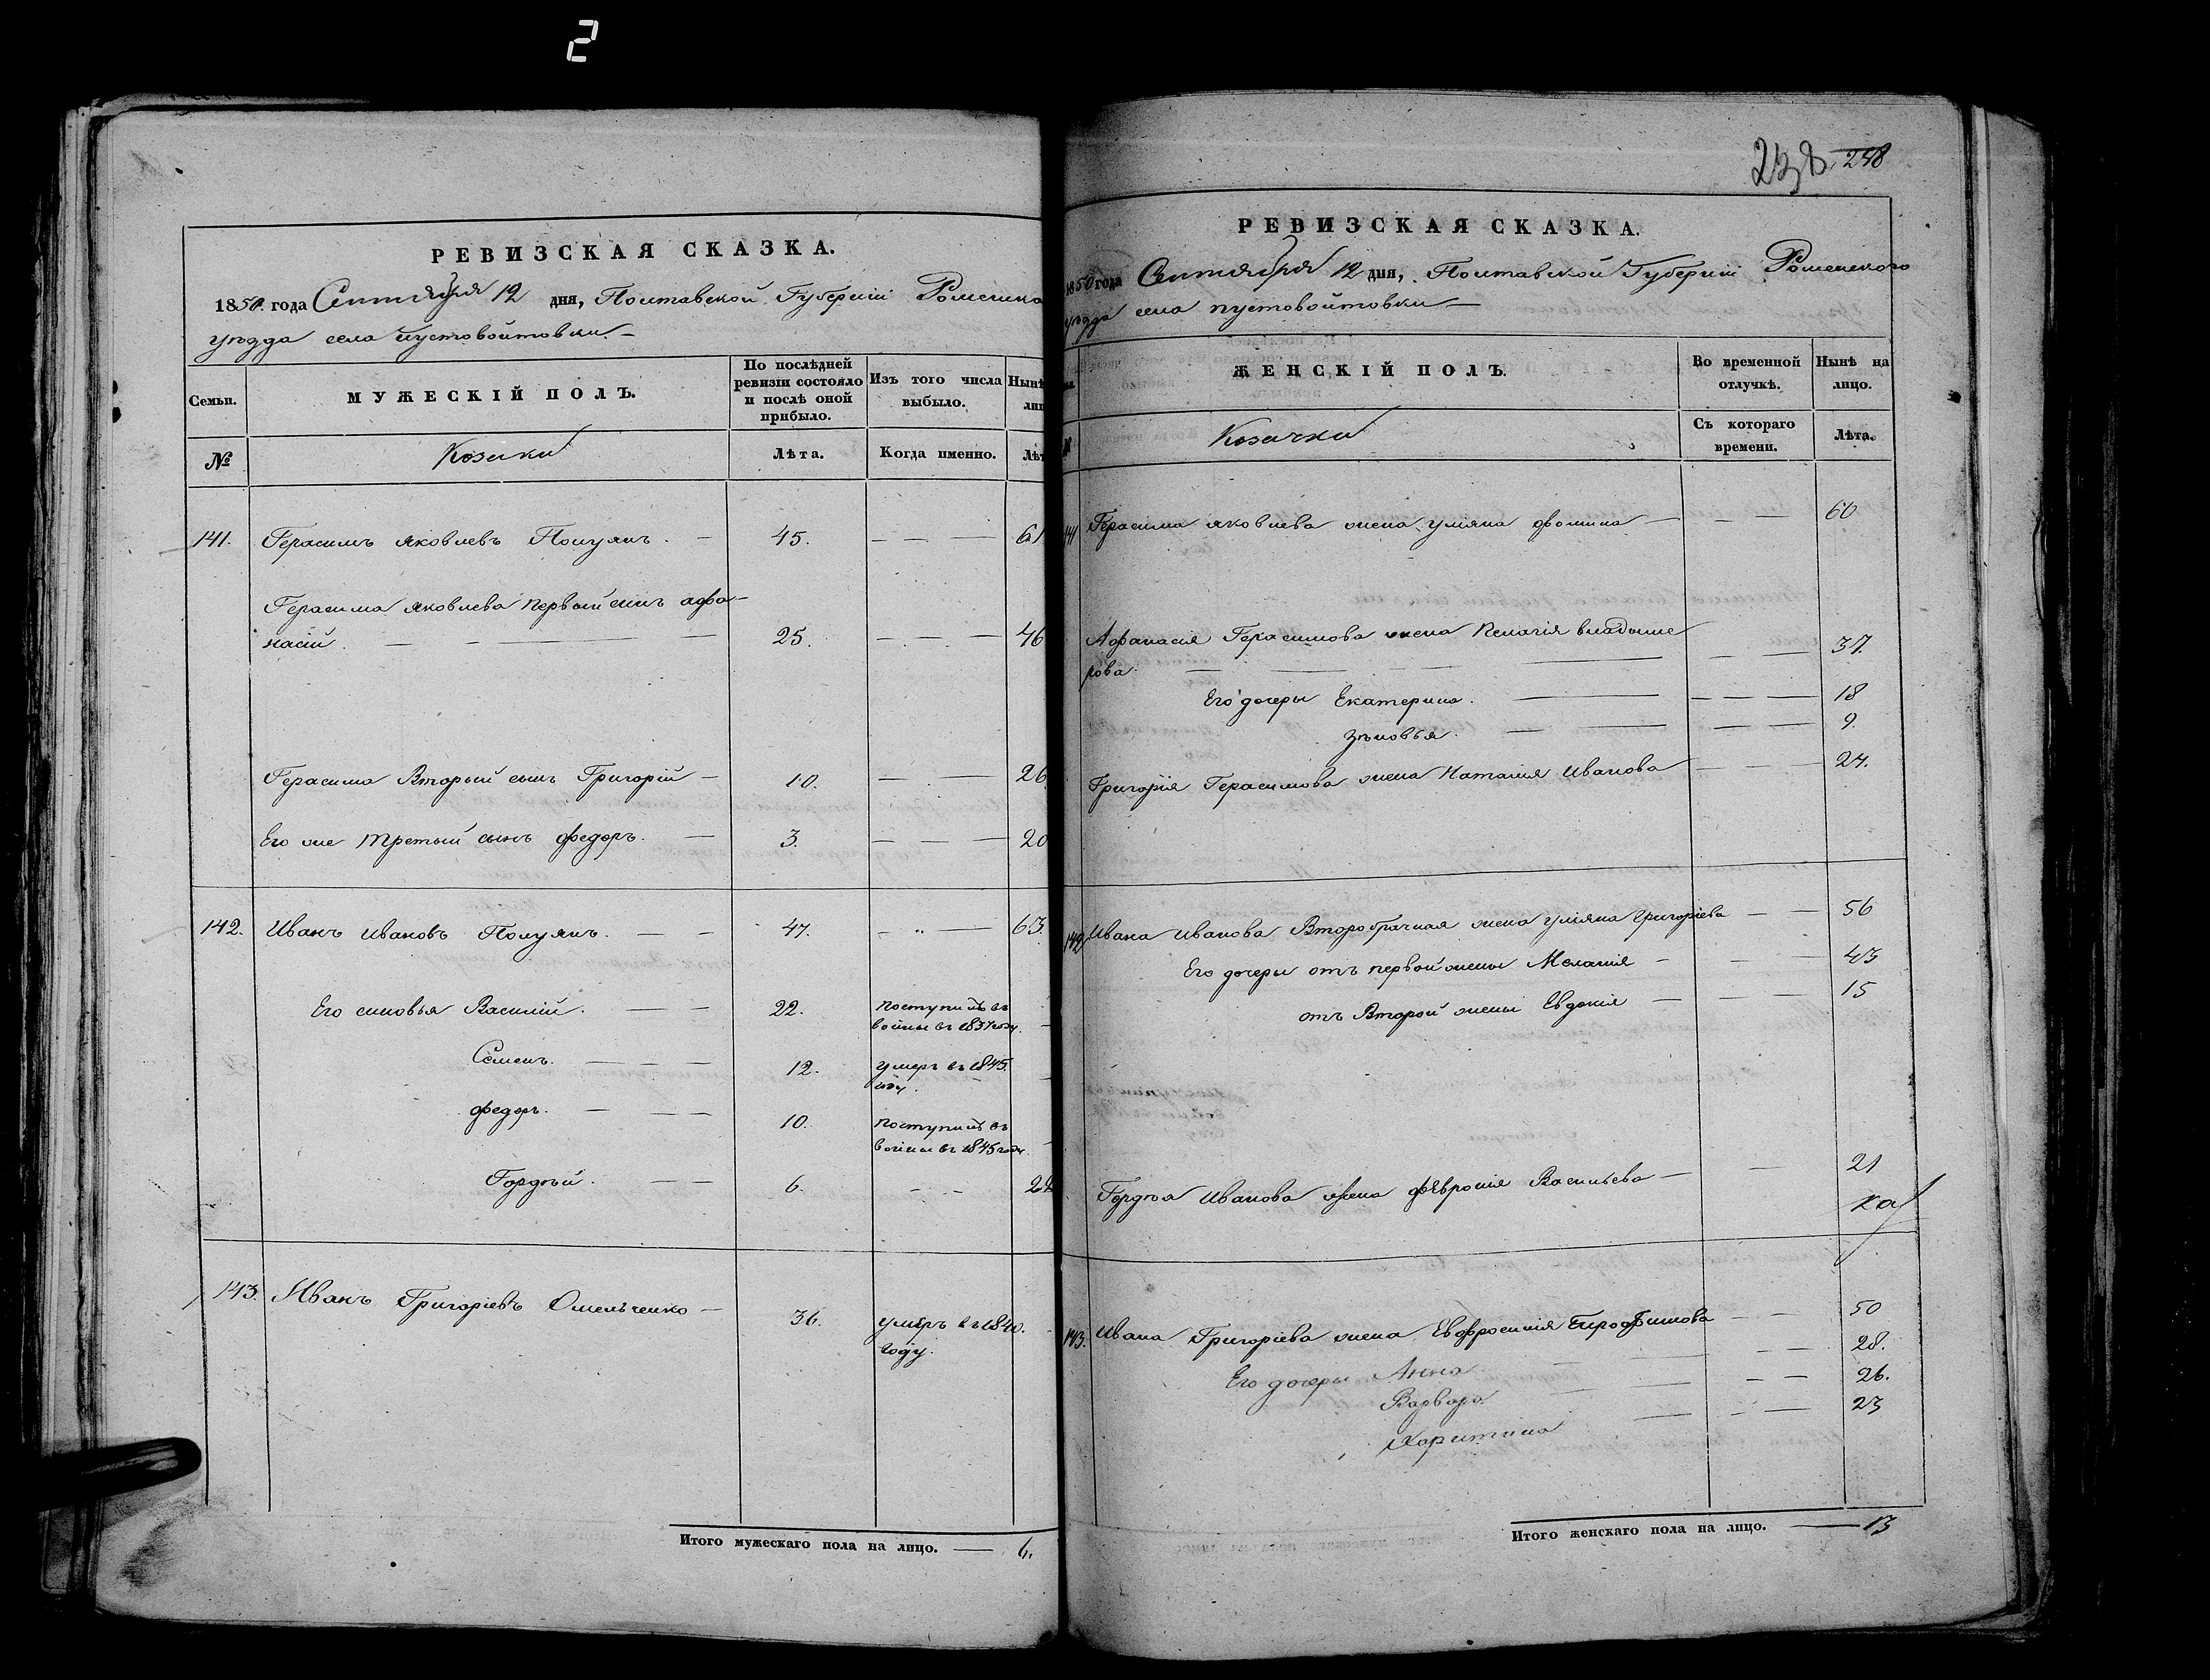 2
РЕВИЗСКАЯ СКАЗКА.
1850. года Сентября 12 дня, Полтавской Губернiи Роменска
уѣзда села пустовойтовки. —
Семьи.
МУЖЕСКІЙ ПОЛЪ.
По послѣдней
ревизіи состояло
и послѣ оной
прибыло.
Изъ того числа
выбыло.
Нынѣ
лиц
№
Козаки
Лѣта.
Когда именно.
Лѣт
141. Герасимъ яковлевъ Полуянъ. — 45. — — — 61
Герасима яковлева первый сынъ афа-
насiй. — — — 25. — — — 46
Герасима Вторый сынъ Григорiй — 10. — — 26.
Его же третый сынъ федоръ. — 3. — — — 20
142. Иванъ ивановъ Полуянъ. — — 47. — „ — 63.
Его сыновья Василiй. — — 22. поступилъ въ
воины въ 1837 году. —
Семенъ. — — — 12. умеръ въ 1845.
году. —
федоръ. — — — 10. поступилъ въ
воины въ 1845 году. —
Гордѣй. — — 6. — — 22
143. Иванъ Григорiевъ Омельченко — 36. умеръ въ 1840.
году.
Итого мужескаго пола на лицо. — 6.
238 248
РЕВИЗСКАЯ СКАЗКА.
1850 года Сентября 12 дня, Полтавской Губернiи Роменского
уѣзда села пустовойтовки —
ЖЕНСКІЙ ПОЛЪ.
Во временной
отлучкѣ.
Нынѣ на
лицо.
№
Козачки
Съ котораго
времени.
Лѣта.
141 Герасима яковлева жена улiяна фомина — — — 60
Афанасiя Герасимова жена Пелагiя владыме
рова. — — — — — — 37.
Его дочеры Екатерина. — — — — 18
зѣновья. — — — — — 9.
Григорiя Герасимова жена Наталiя иванова — — — 24.
142 Ивана иванова Второбрачная жена улiяна григорiева — — 56
Его дочеры отъ первой жены Меланiя — — — 43
отъ Второй жены Евдокiя — — — 15
Гордѣя иванова жена феϐронiя Васильева — — 21
ка
143. Ивана Григорiева жена Евфросинiя — — 50
Его дочеры Анна — — — — 28.
Варвара — — — — 26.
Харитина — — — 23
Итого женскаго пола на лицо. — 13